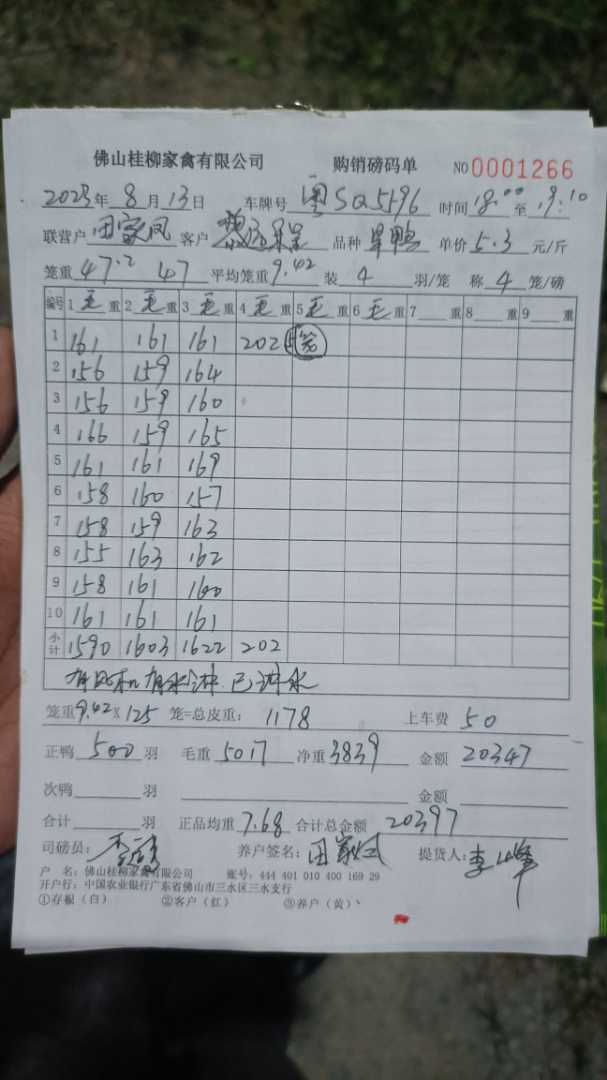 佛山桂柳家禽有限公司 购销磅码单 NO 0001266
2023年 8月 13日 车牌号 粤SQ5196 时间 18:00 至 19:10
联营户 田家凤 客户 品种 旱鸭 单价 5.3 元/斤
笼重 47.2 47 平均笼重 9.42 装 4 羽/笼 称 4 笼/磅
编号 1 毛 重 2 毛 重 3 毛 重 4 毛 重 5 毛 重 6 毛 重 7 重 8 重 9 重
1 161 161 161 202 5笼
2 156 159 164
3 156 159 160
4 166 159 165
5 161 161 169
6 158 160 157
7 158 159 163
8 155 163 162
9 158 161 160
10 161 161 161
小计 1590 1603 1622 202
有风机 有水淋 已淋水
笼重 9.42 X 125 笼=总皮重: 1178 上车费 50
正鸭 500 羽 毛重 5017 净重 3839 金额 20347
次鸭 羽 金额
合计 羽 正品均重 7.68 合计总金额 20397
司磅员: 养户签名: 田家 提货人: 李
户 名: 佛山桂柳家禽有限公司 账号: 444 401 010 400 169 29
开户行: 中国农业银行广东省佛山市三水区三水支行
①存根(白) ②客户(红) ③养户(黄)